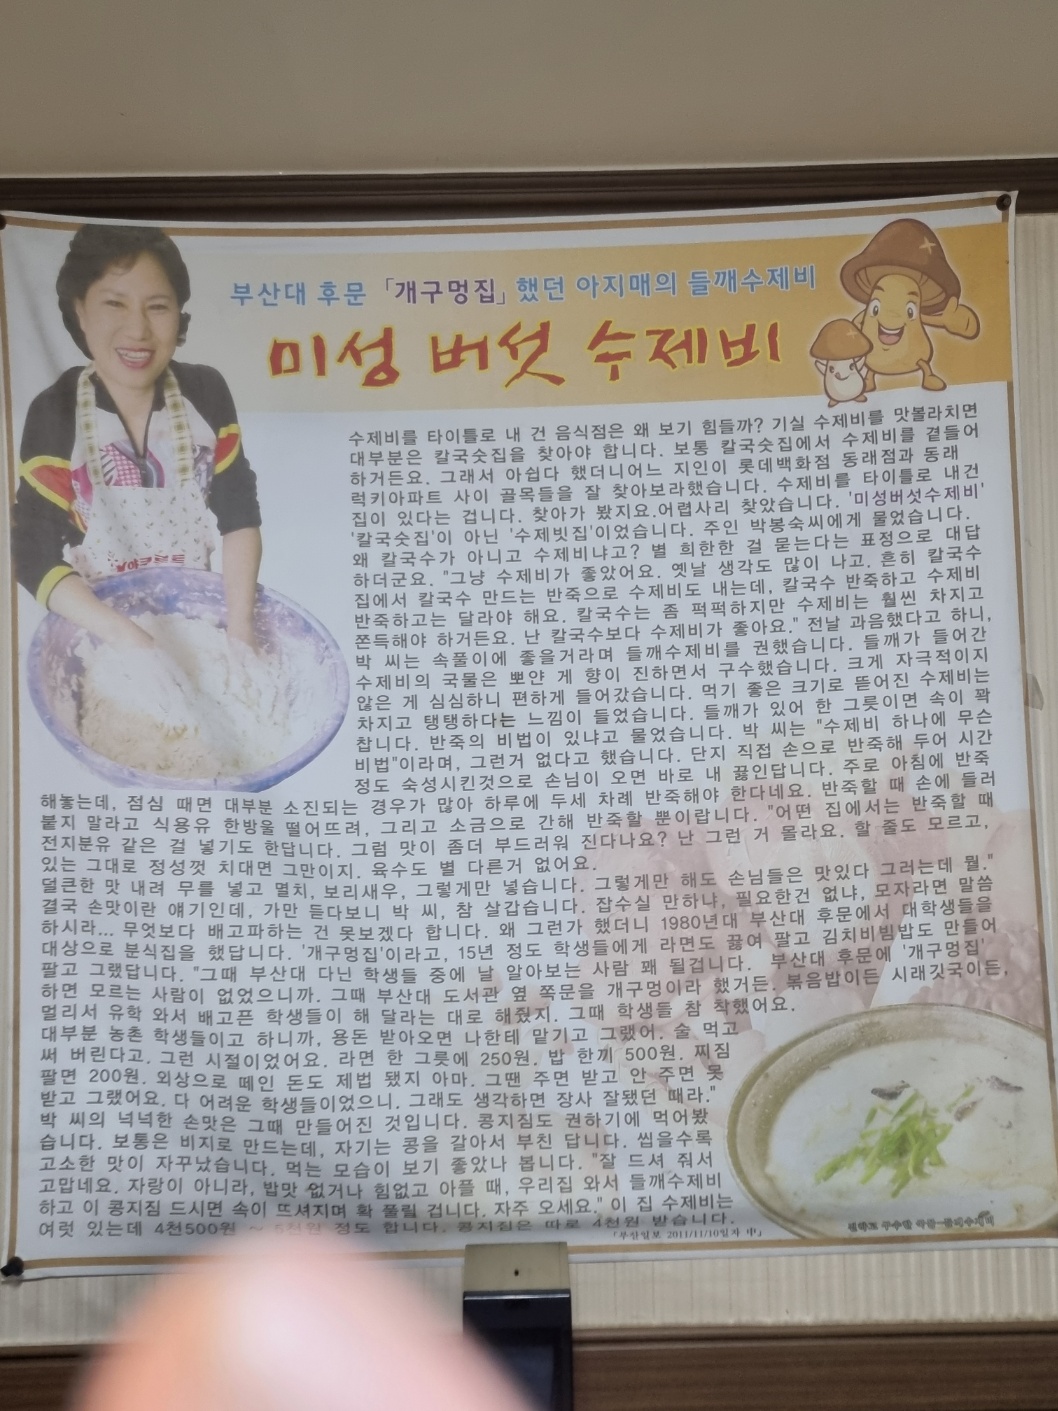 부산대 후문 「개구멍집」했던 아지매의 들깨수제비
미성 버섯 수제비
수제비를 타이틀로 내 건 음식점은 왜 보기 힘들까? 기실 수제비를 맛볼라치면
대부분은 칼국숫집을 찾아야 합니다. 보통 칼국숫집에서 수제비를 곁들어
하거든요. 그래서 아쉽다 했더니어느 지인이 롯데백화점 동래점과 동래
럭키아파트 사이 골목들을 잘 찾아보라했습니다. 수제비를 타이틀로 내건
집이 있다는 겁니다. 찾아가 봤지요.어렵사리 찾았습니다. '미성버섯수제비'
'칼국숫집'이 아닌 '수제빗집'이었습니다. 주인 박봉숙씨에게 물었습니다.
왜 칼국수가 아니고 수제비냐고? 별 희한한 걸 묻는다는 표정으로 대답
하더군요. "그냥 수제비가 좋았어요. 옛날 생각도 많이 나고. 흔히 칼국수
집에서 칼국수 만드는 반죽으로 수제비도 내는데, 칼국수 반죽하고 수제비
반죽하고는 달라야 해요. 칼국수는 좀 퍽퍽하지만 수제비는 훨씬 차지고
쫀득해야 하거든요. 난 칼국수보다 수제비가 좋아요." 전날 과음했다고 하니,
박 씨는 속풀이에 좋을거라며 들깨수제비를 권했습니다. 들깨가 들어간
수제비의 국물은 뽀얀 게 향이 진하면서 구수했습니다. 크게 자극적이지
않은 게 심심하니 편하게 들어갔습니다. 먹기 좋은 크기로 뜯어진 수제비는
차지고 탱탱하다는 느낌이 들었습니다. 들깨가 있어 한 그릇이면 속이 꽉
찹니다. 반죽의 비법이 있냐고 물었습니다. 박 씨는 "수제비 하나에 무슨
비법"이라며, 그런거 없다고 했습니다. 단지 직접 손으로 반죽해 두어 시간
정도 숙성시킨것으로 손님이 오면 바로 내 끓인답니다. 주로 아침에 반죽
해놓는데, 점심 때면 대부분 소진되는 경우가 많아 하루에 두세 차례 반죽해야 한다네요. 반죽할 때 손에 들러
붙지 말라고 식용유 한방울 떨어뜨려, 그리고 소금으로 간해 반죽할 뿐이랍니다. "어떤 집에서는 반죽할 때
전지분유 같은 걸 넣기도 한답니다. 그럼 맛이 좀더 부드러워 진다나요? 난 그런 거 몰라요. 할 줄도 모르고,
있는 그대로 정성껏 치대면 그만이지. 육수도 별 다른거 없어요.
덜큰한 맛 내려 무를 넣고 멸치, 보리새우, 그렇게만 넣습니다. 그렇게만 해도 손님들은 맛있다 그러는데 뭘."
결국 손맛이란 얘기인데, 가만 듣다보니 박 씨, 참 살갑습니다. 잡수실 만하냐, 필요한건 없냐, 모자라면 말씀
하시라... 무엇보다 배고파하는 건 못보겠다 합니다. 왜 그런가 했더니 1980년대 부산대 후문에서 대학생들을
대상으로 분식집을 했답니다. '개구멍집'이라고, 15년 정도 학생들에게 라면도 끓여 팔고 김치비빔밥도 만들어
팔고 그랬답니다. "그때 부산대 다닌 학생들 중에 날 알아보는 사람 꽤 될겁니다. 부산대 후문에 '개구멍집'
하면 모르는 사람이 없었으니까. 그때 부산대 도서관 옆 쪽문을 개구멍이라 했거든. 볶음밥이든 시래깃국이든,
멀리서 유학 와서 배고픈 학생들이 해 달라는 대로 해줬지. 그때 학생들 참 착했어요.
대부분 농촌 학생들이고 하니까, 용돈 받아오면 나한테 맡기고 그랬어. 술 먹고
써 버린다고. 그런 시절이었어요. 라면 한 그릇에 250원, 밥 한끼 500원. 찌짐
팔면 200원. 외상으로 떼인 돈도 제법 됐지 아마. 그땐 주면 받고 안 주면 못
받고 그랬어요. 다 어려운 학생들이었으니. 그래도 생각하면 장사 잘됐던 때라."
박 씨의 넉넉한 손맛은 그때 만들어진 것입니다. 콩지짐도 권하기에 먹어봤
습니다. 보통은 비지로 만드는데, 자기는 콩을 갈아서 부친 답니다. 씹을수록
고소한 맛이 자꾸났습니다. 먹는 모습이 보기 좋았나 봅니다. "잘 드셔 줘서
고맙네요. 자랑이 아니라, 밥맛 없거나 힘없고 아플 때, 우리집 와서 들깨수제비
하고 이 콩지짐 드시면 속이 뜨셔지며 확 풀릴 겁니다. 자주 오세요." 이 집 수제비는
여럿 있는데 4천500원 ~ 5천원 정도 합니다. 콩지짐은 따로 4천원 받습니다.
「부산일보 2011/11/10일자 中」
야쿠르트